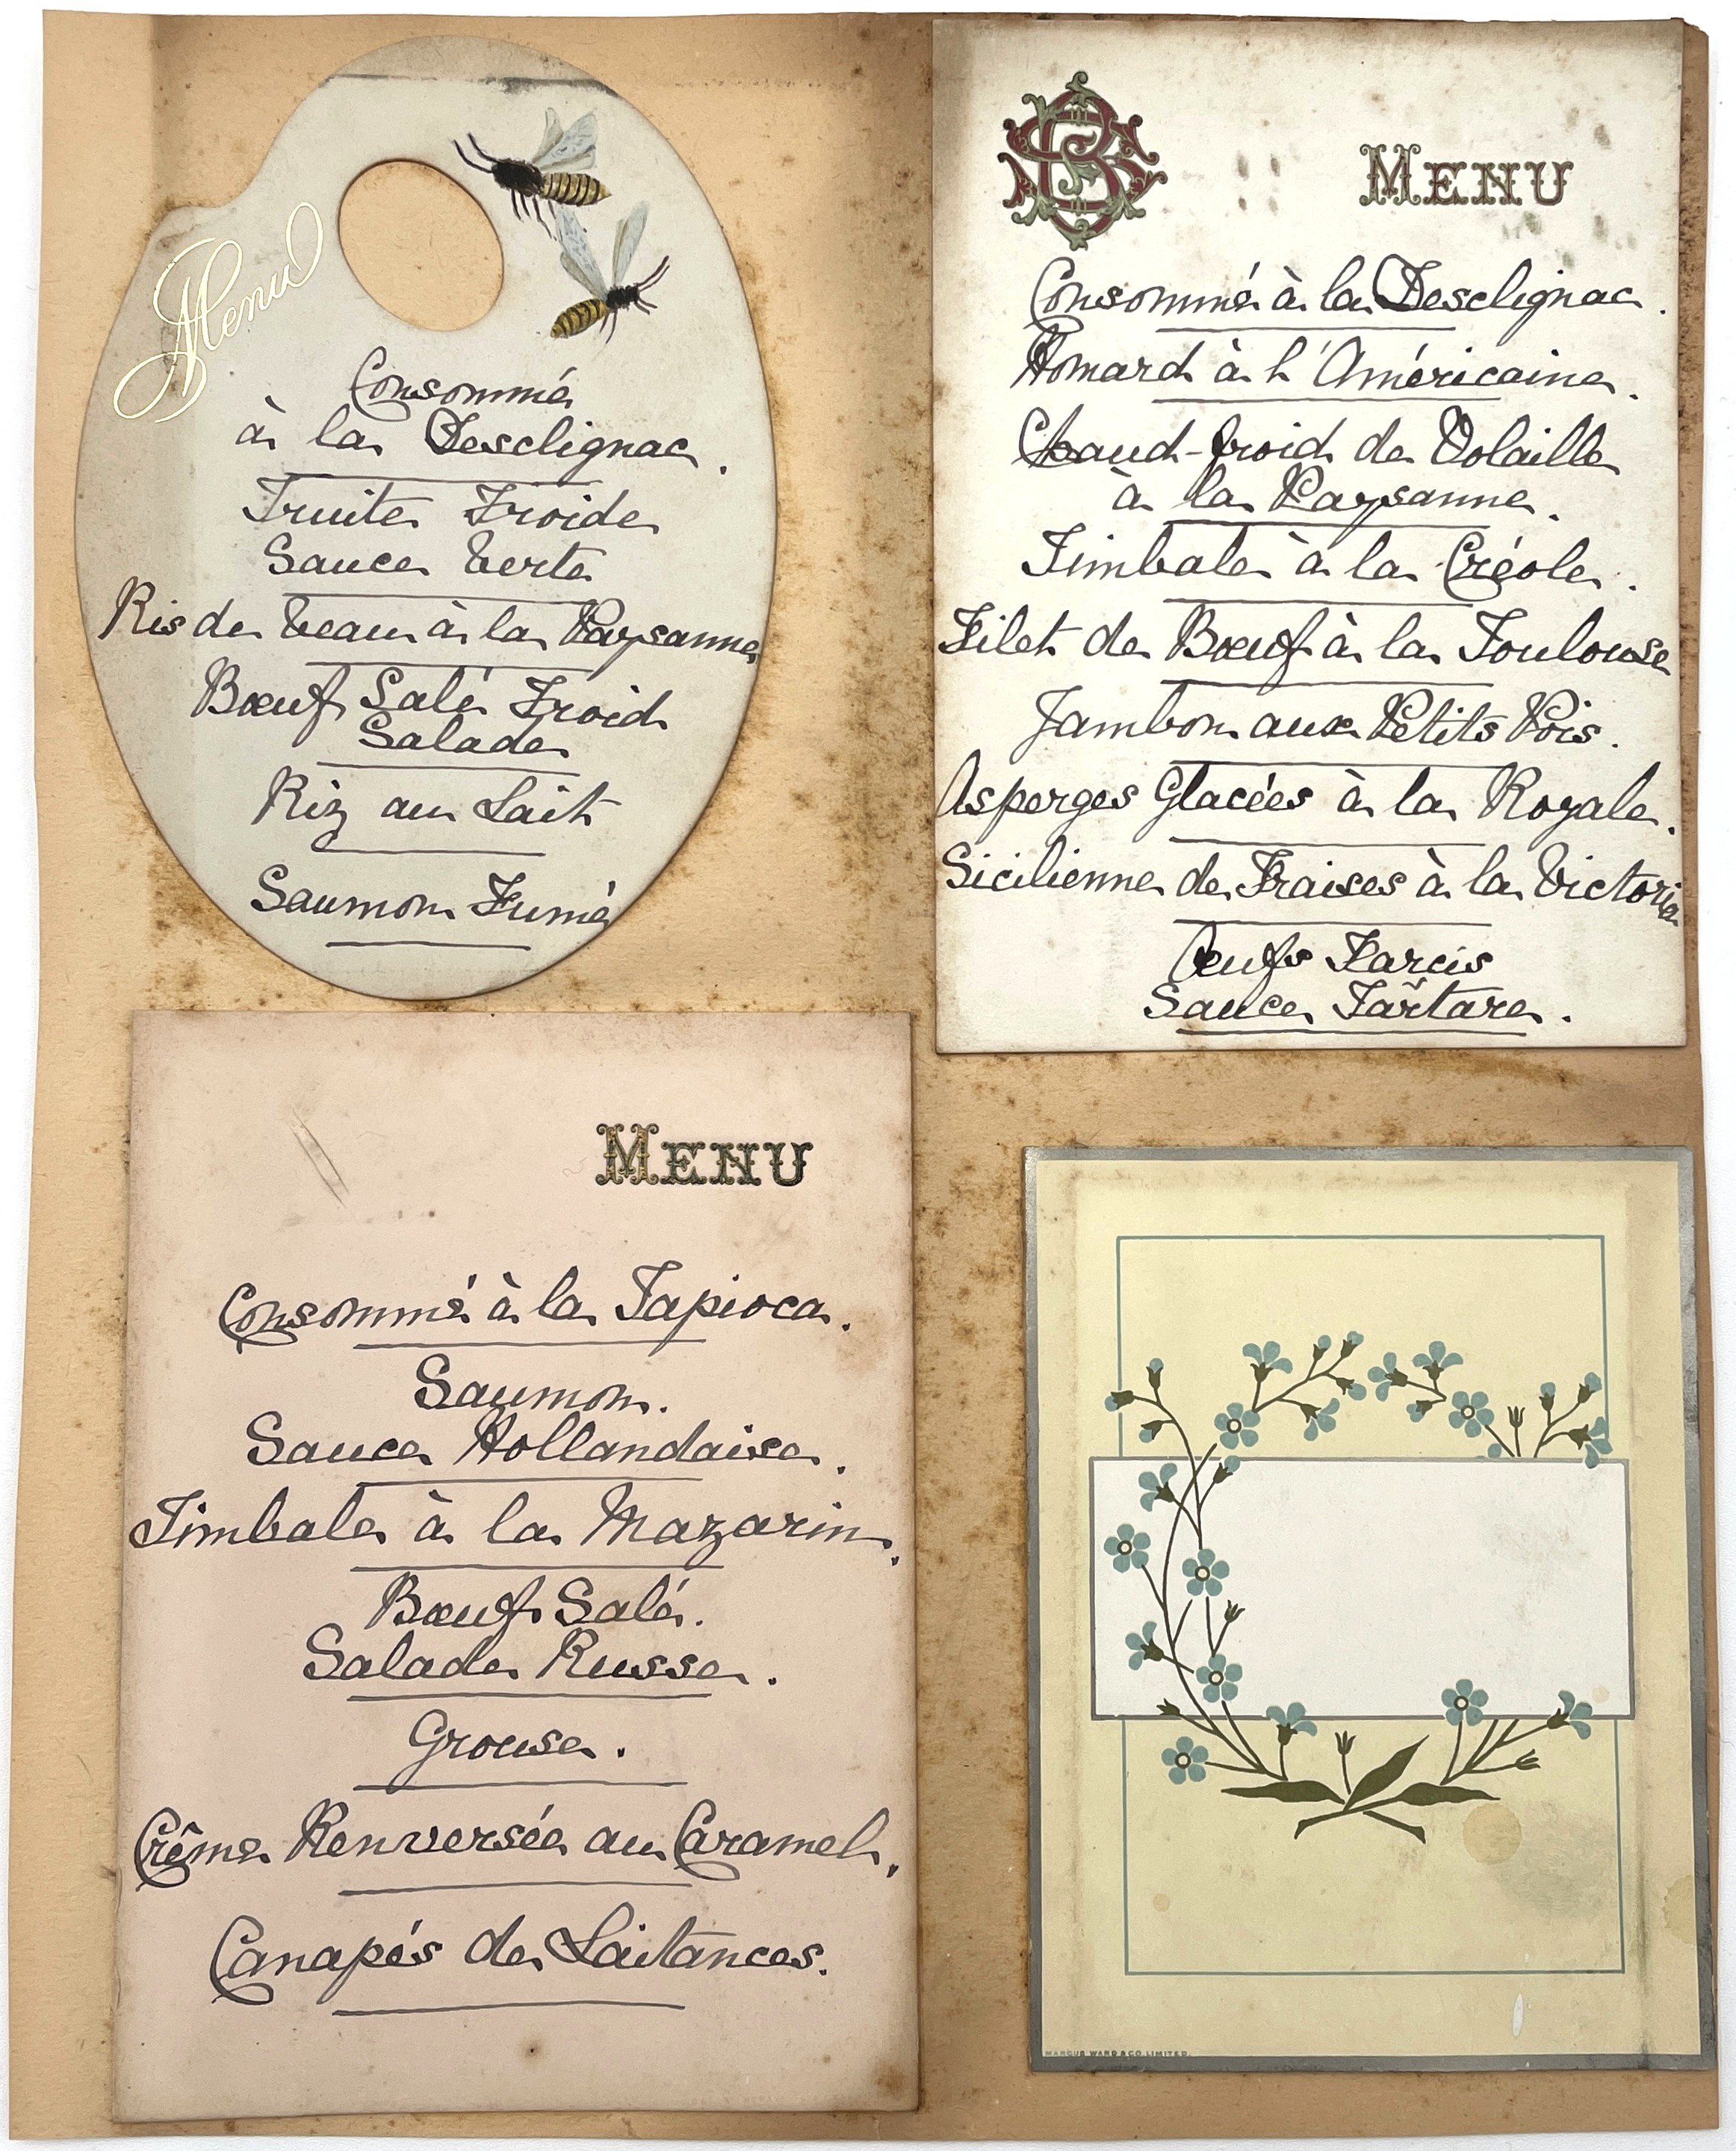 Menu
Consommé
à la Desclignac.
Truite Froide
Sauce Verte
Ris de Veau à la Paysanne
Bœuf Salé Froid
Salade
Riz au Lait
Saumon Fumé
MENU
Consommé à la Desclignac.
Homard à l'Américaine.
Chaud-froid de Volaille
à la Paysanne.
Timbale à la Créole.
Filet de Bœuf à la Toulouse
Jambon aux Petits Pois.
Asperges Glacées à la Royale.
Sicilienne de Fraises à la Victoria
Œufs Farcis
Sauce Tartare.
MENU
Consommé à la Tapioca.
Saumon.
Sauce Hollandaise.
Timbale à la Mazarin.
Bœuf Salé.
Salade Russe.
Grouse.
Crême Renversée au Caramel.
Canapés de Laitances.
MARCUS WARD & CO. LIMITED.